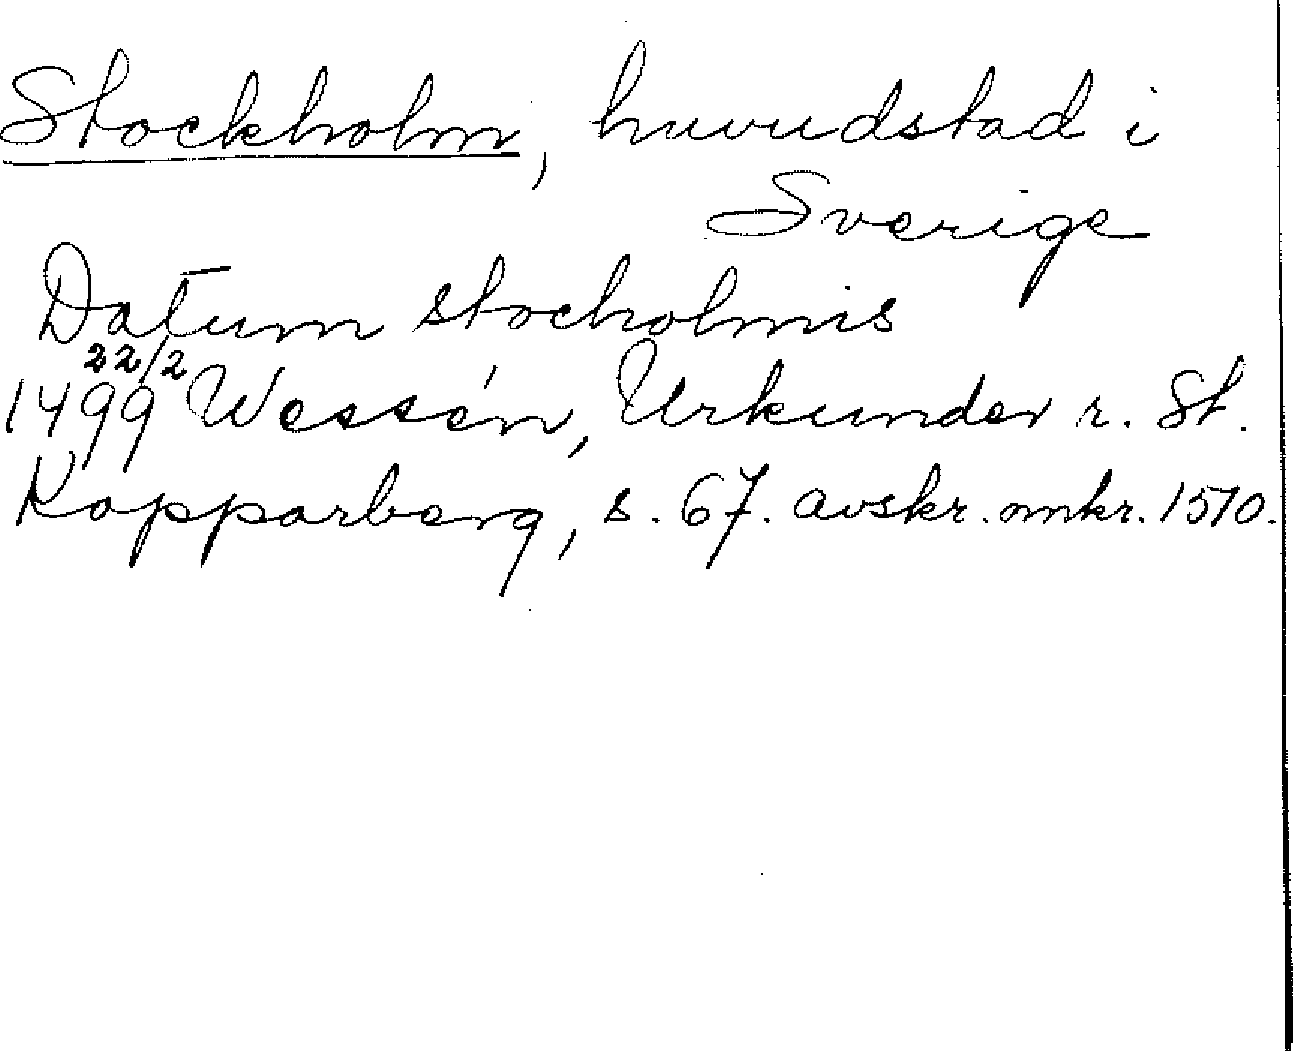 Stockholm, huvudstad i
Sverige
Datum stocholmis
1499 22/2 Wessén, Urkunder r. St.
Kopparberg, s. 67. avskr. omkr. 1510.